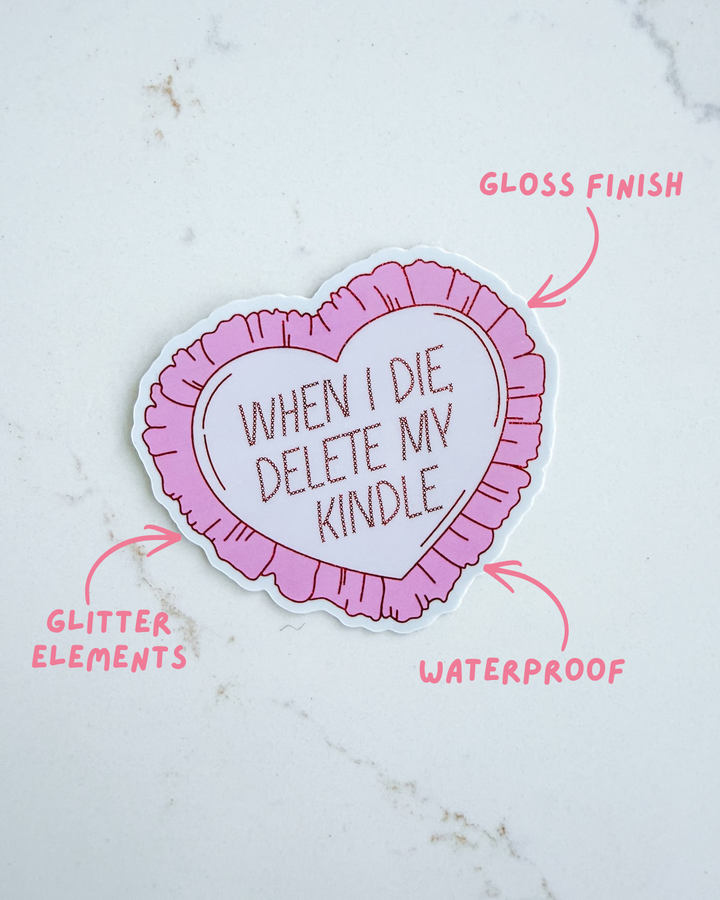 GLOSS FINISH
WHEN I DIE,
DELETE MY
KINDLE
GLITTER
ELEMENTS
WATERPROOF